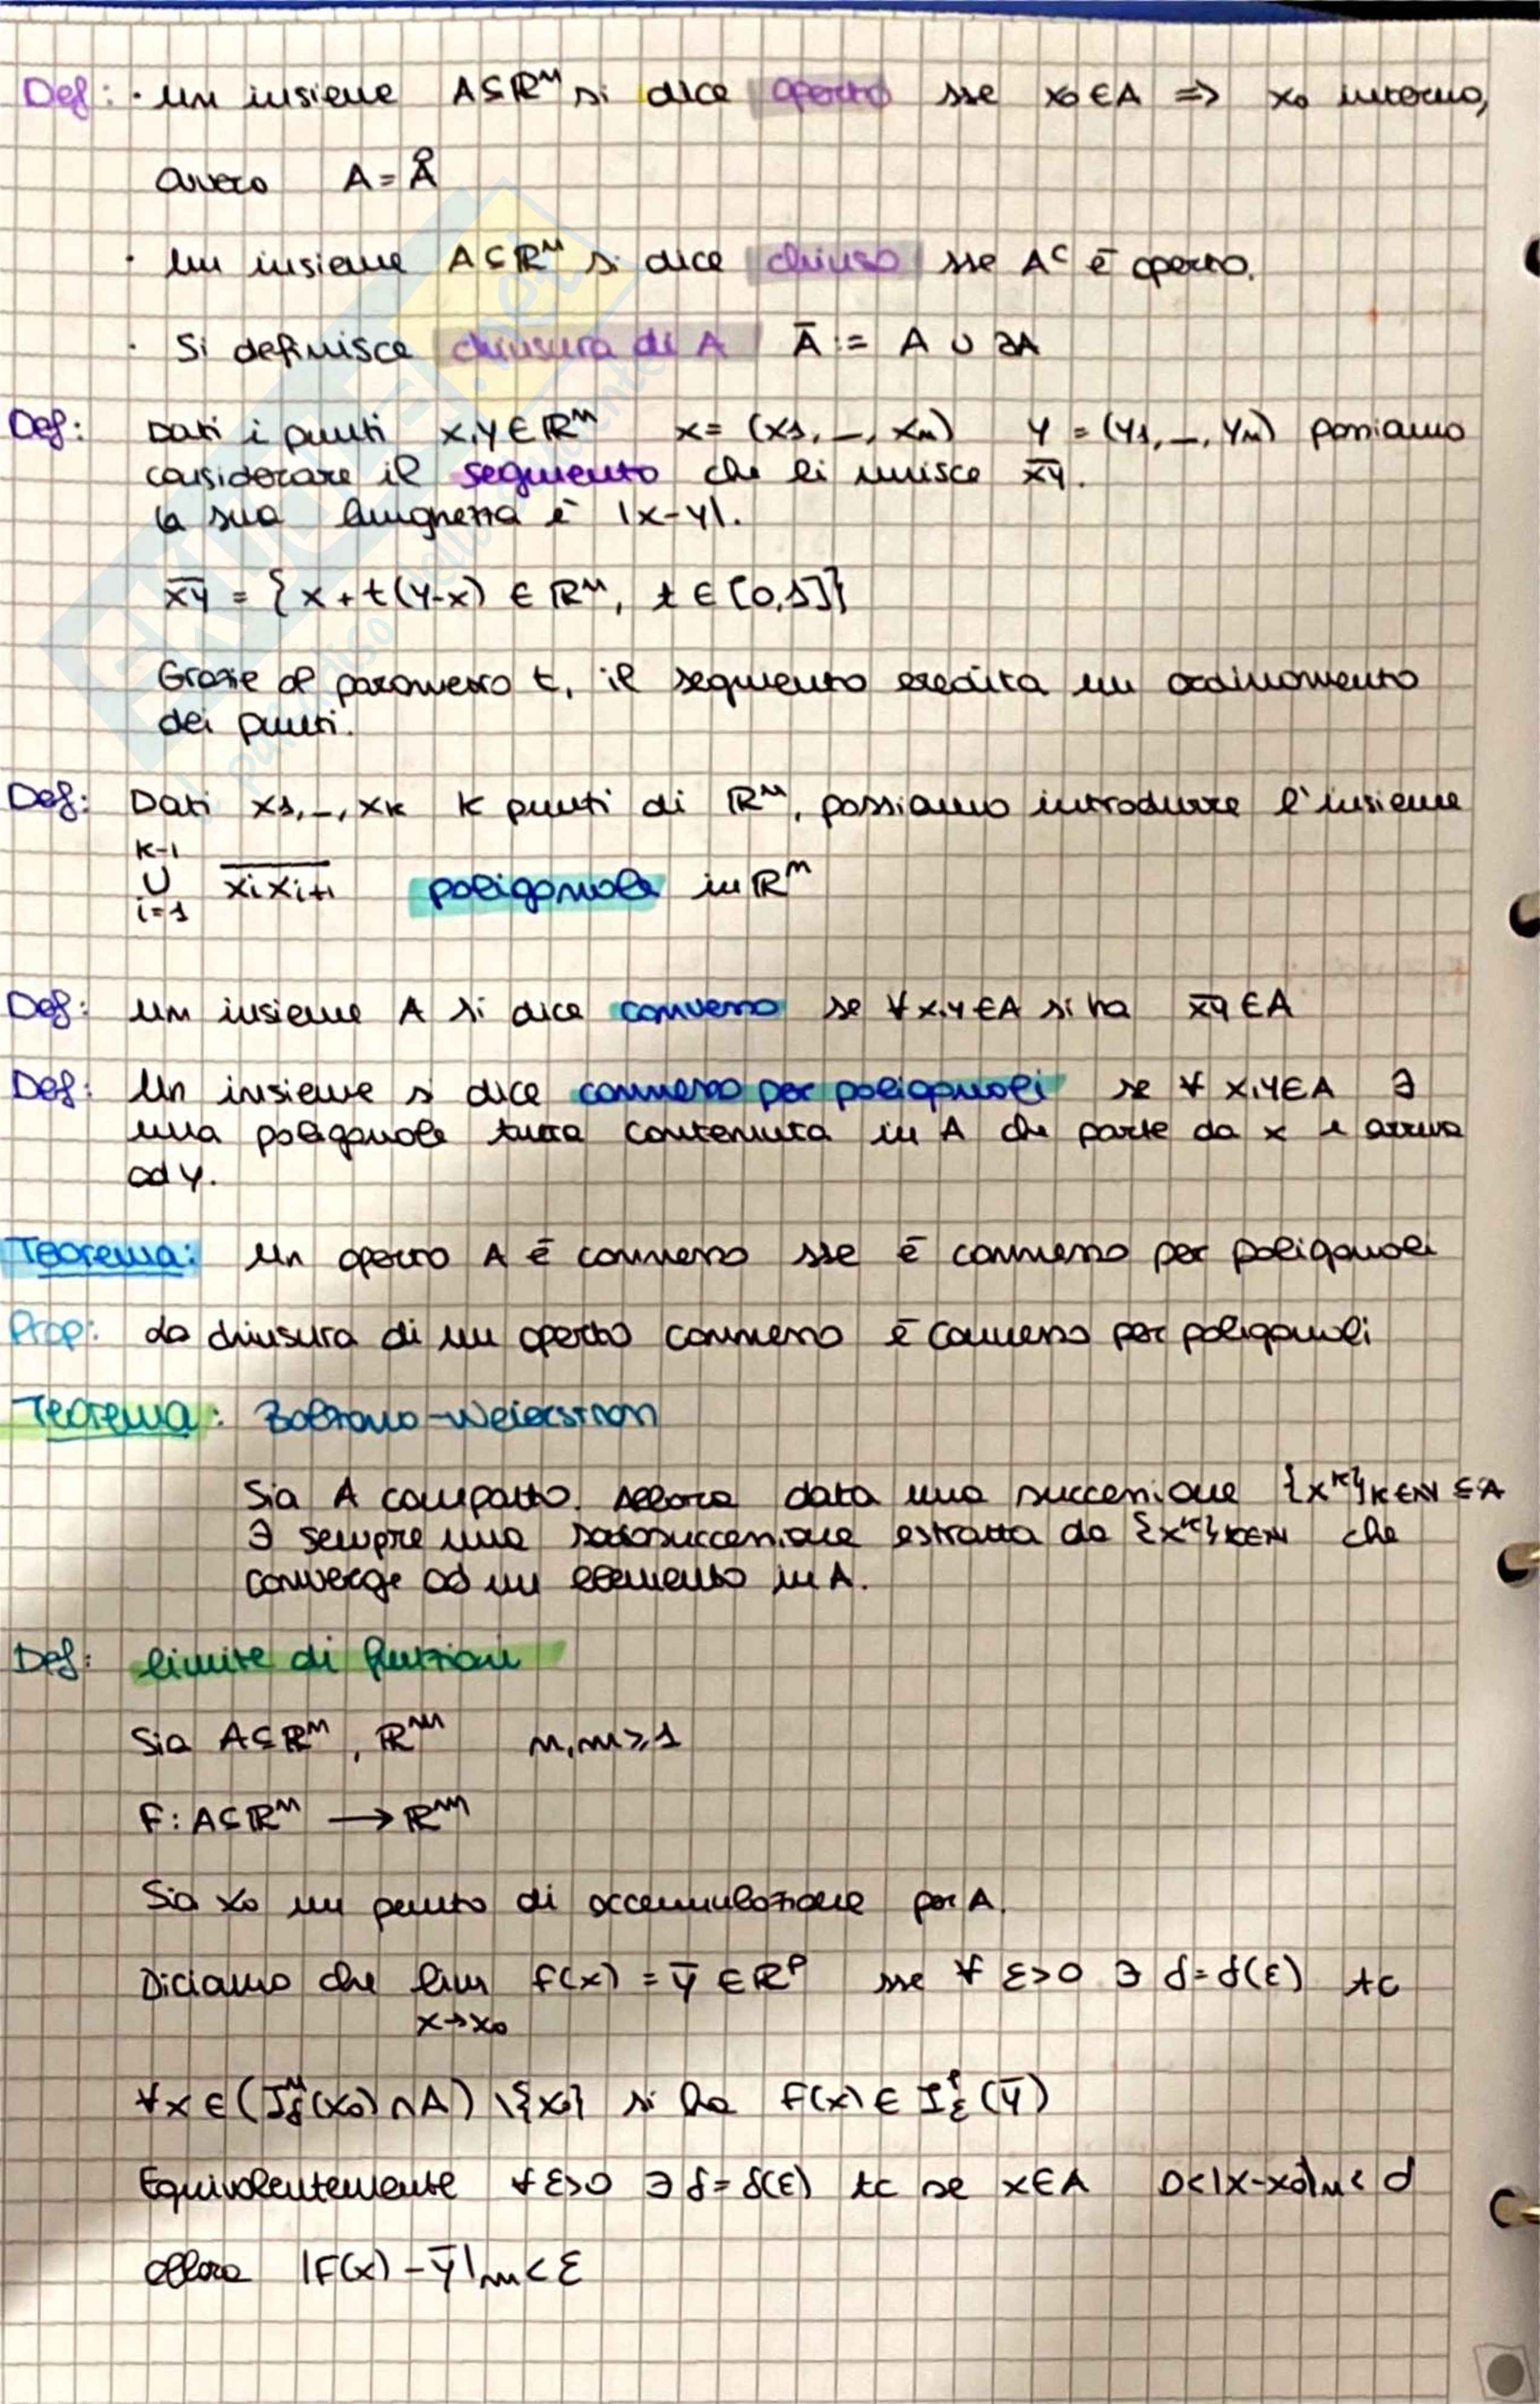 Def: · Un insieme A⊆ℝⁿ si dice aperto sse x₀∈A => x₀ interno,
ovvero A = Å
· Un insieme A⊆ℝⁿ si dice chiuso sse Aᶜ è aperto.
· Si definisce chiusura di A Ā := A ∪ ∂A
Def: Dati i punti x,y∈ℝⁿ x = (x₁, _, xₙ) y = (y₁, _, yₙ) possiamo
considerare il segmento che li unisce x̅y̅.
la sua lunghezza è |x-y|.
x̅y̅ = {x + t(y-x) ∈ ℝⁿ, t ∈ [0,1]}
Grazie al parametro t, il segmento eredita un ordinamento
dei punti.
Def: Dati x₁, _, xₖ k punti di ℝⁿ, possiamo introdurre l'insieme
k-1
∪ x̅ᵢx̅ᵢ₊₁ poligonale in ℝⁿ
i=1
Def: Un insieme A si dice convesso se ∀x,y∈A si ha x̅y̅ ∈A
Def: Un insieme si dice connesso per poligonali se ∀ x,y∈A ∃
una poligonale tutta contenuta in A che parte da x e arriva
ad y.
Teorema: Un aperto A è connesso sse è connesso per poligonali
Prop: La chiusura di un aperto connesso è connesso per poligonali
Teorema: Bolzano-Weierstrass
Sia A compatto. Allora data una successione {xᵏ}ₖ∈ℕ ⊆A
∃ sempre una sottosuccessione estratta da {xᵏ}ₖ∈ℕ che
converge ad un elemento in A.
Def: limite di funzioni
Sia A⊆ℝⁿ, ℝᵐ n,m≥1
F: A⊆ℝⁿ → ℝᵐ
Sia x₀ un punto di accumulazione per A.
Diciamo che lim f(x) = ȳ ∈ℝᵖ sse ∀ ε>0 ∃ δ=δ(ε) tc
x→x₀
∀x∈(Iⁿ_δ(x₀)∩A) \{x₀} si ha F(x)∈ I_ε(ȳ)
Equivalentemente ∀ε>0 ∃ δ=δ(ε) tc se x∈A 0<|x-x₀|ₙ< δ
allora |F(x) - ȳ|ₘ<ε